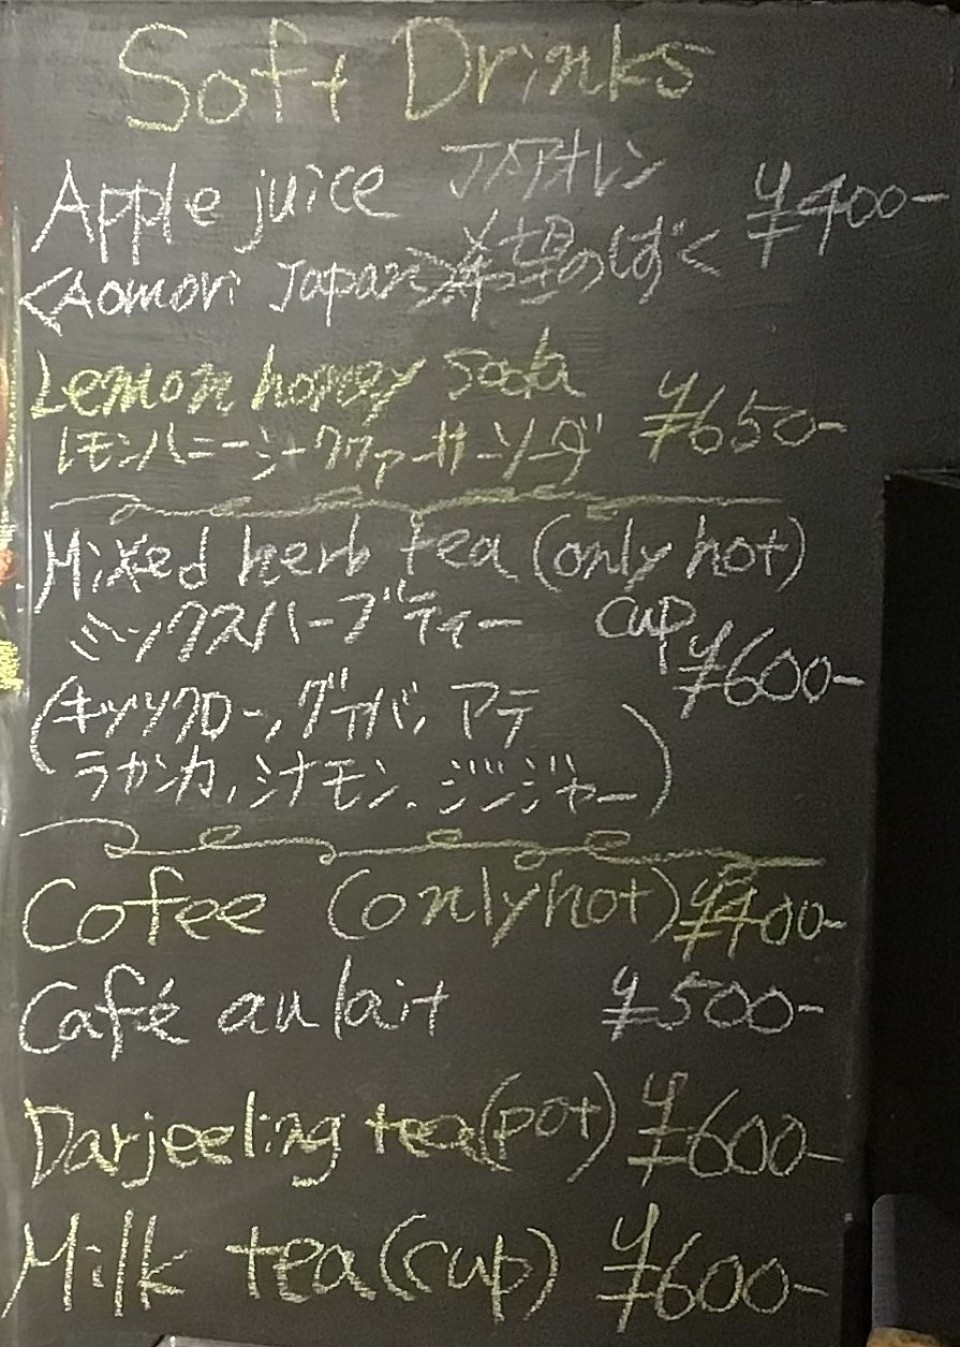 Soft Drinks
Apple juice JAアオレン ¥400-
<Aomori Japan>希望のしずく
Lemon honey soda ¥650-
レモンハニージークファーサーソーダ
Mixed herb tea (only hot)
ミックスハーブティー cup ¥600-
(キャッツクロー, グァバ, アテ
ラカンカ, シナモン, ジンジャー)
Cofee (only hot) ¥400-
Café au lait ¥500-
Darjeeling tea (pot) ¥600-
Milk tea (cup) ¥600-